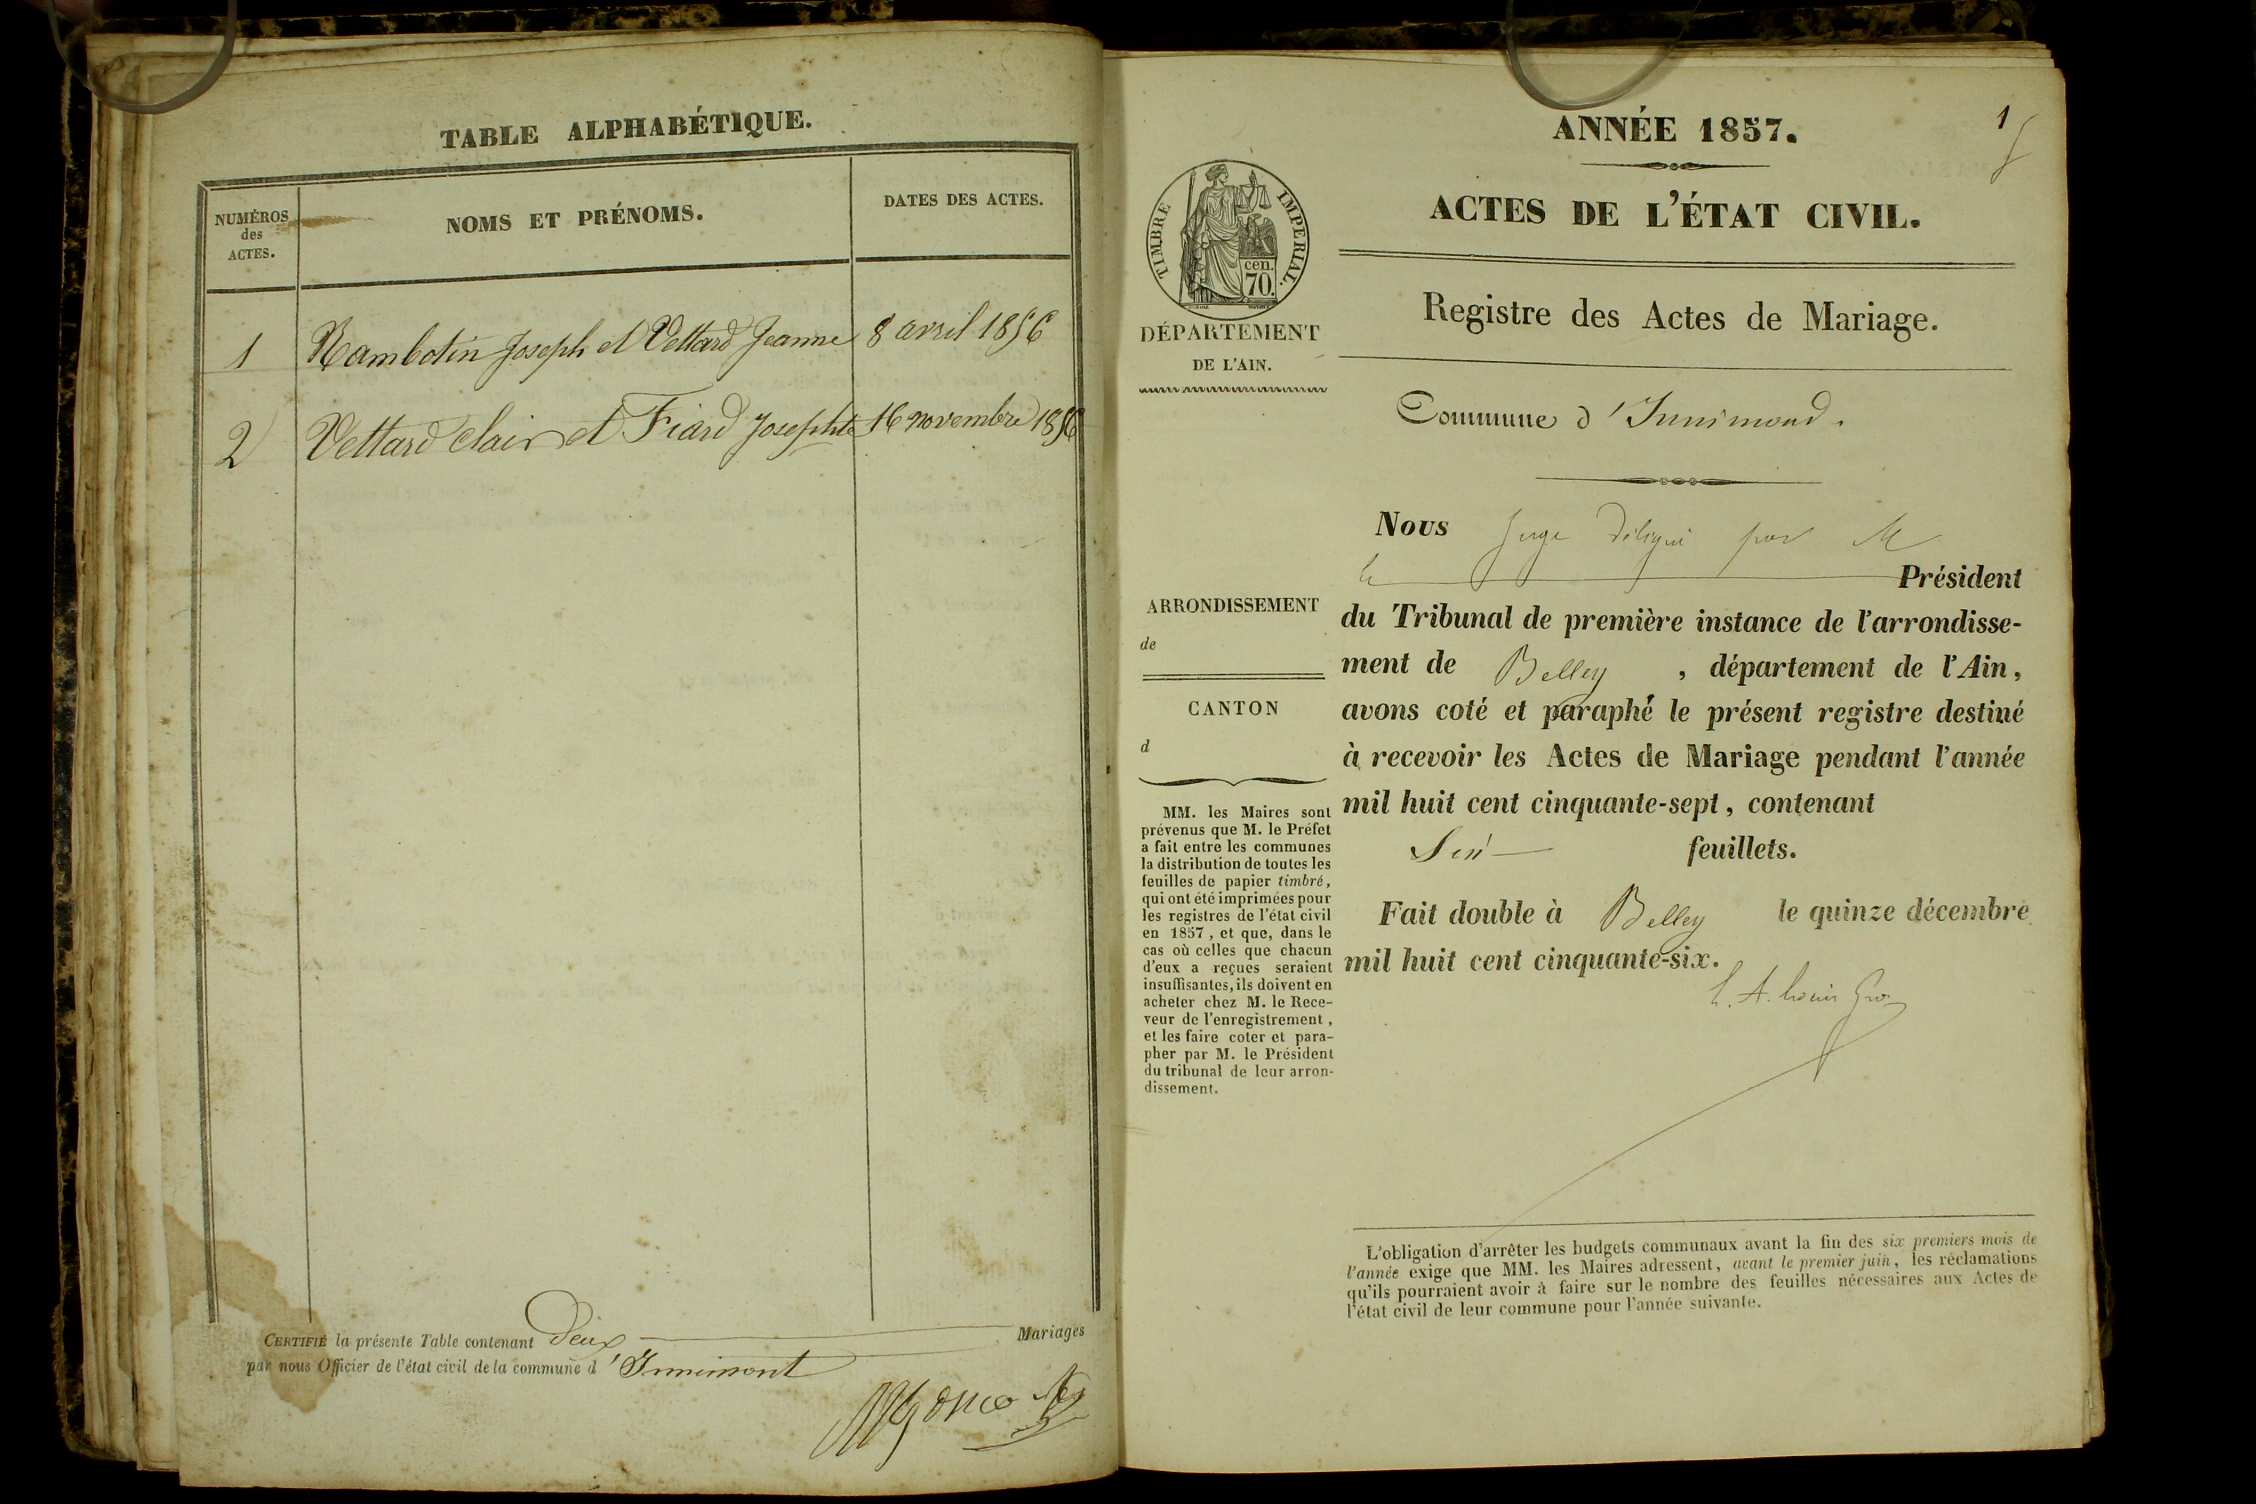 TABLE ALPHABÉTIQUE.
NUMÉROS
des
ACTES.
NOMS ET PRÉNOMS.
DATES DES ACTES.
1 Rambotin Joseph et Vettard Jeanne 8 avril 1856
2 Vettard Clair et Fiard Josephte 16 novembre 1856
CERTIFIÉ la présente Table contenant deux Mariages
par nous Officier de l'état civil de la commune d'Innimont
1
ANNÉE 1857.
ACTES DE L'ÉTAT CIVIL.
TIMBRE IMPERIAL.
cen.
70.
DÉPARTEMENT
DE L'AIN.
Registre des Actes de Mariage.
Commune d'Innimond.
ARRONDISSEMENT
de
CANTON
d
MM. les Maires sont
prévenus que M. le Préfet
a fait entre les communes
la distribution de toutes les
feuilles de papier timbré,
qui ont été imprimées pour
les registres de l'état civil
en 1857, et que, dans le
cas où celles que chacun
d'eux a reçues seraient
insuffisantes, ils doivent en
acheter chez M. le Rece-
veur de l'enregistrement,
et les faire coter et para-
pher par M. le Président
du tribunal de leur arron-
dissement.
Nous Juge par M
le Président
du Tribunal de première instance de l'arrondisse-
ment de Belley, département de l'Ain,
avons coté et paraphé le présent registre destiné
à recevoir les Actes de Mariage pendant l'année
mil huit cent cinquante-sept, contenant
feuillets.
Fait double à Belley le quinze décembre
mil huit cent cinquante-six.
L'obligation d'arrêter les budgets communaux avant la fin des six premiers mois de
l'année exige que MM. les Maires adressent, avant le premier juin, les réclamations
qu'ils pourraient avoir à faire sur le nombre des feuilles nécessaires aux Actes de
l'état civil de leur commune pour l'année suivante.